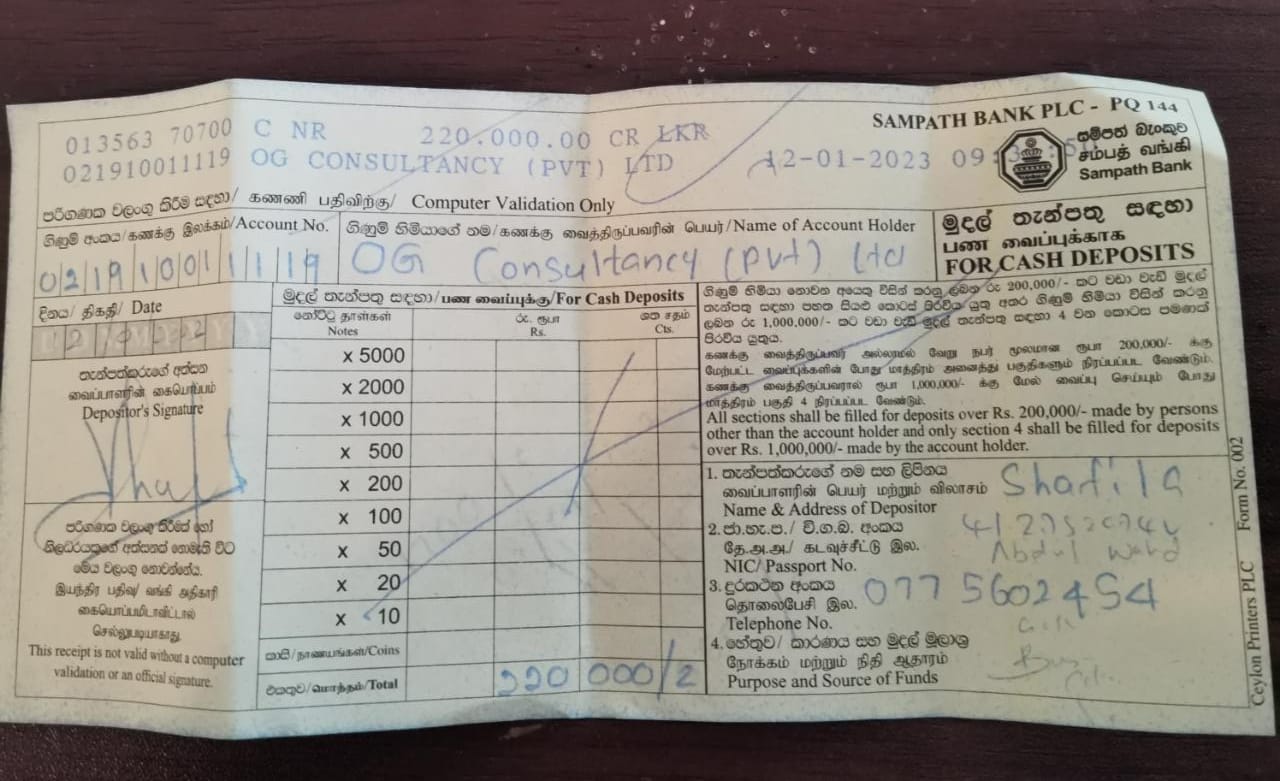 SAMPATH BANK PLC - PQ 144
013563 70700 C NR 220.000.00 CR LKR
021910011119 OG CONSULTANCY (PVT) LTD 12-01-2023 09
සම්පත් බැංකුව
சம்பத் வங்கி
Sampath Bank
පරිගණක වලංගු කිරීම් සඳහා/ கணணி பதிவிற்கு/ Computer Validation Only
ගිණුම් අංකය/கணக்கு இலக்கம்/Account No.
ගිණුම් හිමියාගේ නම/கணக்கு வைத்திருப்பவரின் பெயர்/Name of Account Holder
021910011119
OG Consultancy (pvt) Ltd
මුදල් තැන්පතු සඳහා
பண வைப்புக்காக
FOR CASH DEPOSITS
දිනය/ திகதி/ Date
තැන්පත්කරුගේ අත්සන
வைப்பாளரின் கையொப்பம்
Depositor's Signature
පරිගණක වලංගු කිරීමක් හෝ
නිලධරයකුගේ අත්සනක් නොමැති විට
මෙය වලංගු නොවන්නේය.
இயந்திர பதிவு/ வங்கி அதிகாரி
கையொப்பமிடாவிட்டால்
செல்லுபடியாகாது.
This receipt is not valid without a computer
validation or an official signature.
මුදල් තැන්පතු සඳහා/பண வைப்புக்கு/For Cash Deposits
නෝට්ටු தாள்கள்
Notes
රු. ரூபா
Rs.
ශත சதம்
Cts.
x 5000
x 2000
x 1000
x 500
x 200
x 100
x 50
x 20
x 10
කාසි/நாணயங்கள்/Coins
එකතුව/மொத்தம்/Total
220 000/2
ගිණුම් හිමියා නොවන අයෙකු විසින් කරනු ලබන රු 200,000/- කට වඩා වැඩි මුදල්
තැන්පතු සඳහා පහත සියළු කොටස් පිරවිය යුතු අතර ගිණුම් හිමියා විසින් කරනු
ලබන රු 1,000,000/- කට වඩා වැඩි මුදල් තැන්පතු සඳහා 4 වන කොටස පමණක්
පිරවිය යුතුය.
கணக்கு வைத்திருப்பவர் அல்லாமல் வேறு நபர் மூலமான ரூபா 200,000/- க்கு
மேற்பட்ட வைப்புக்களின் போது மாத்திரம் அனைத்து பகுதிகளும் நிரப்பப்பட வேண்டும்.
கணக்கு வைத்திருப்பவரால் ரூபா 1,000,000/- க்கு மேல் வைப்பு செய்யும் போது
மாத்திரம் பகுதி 4 நிரப்பப்பட வேண்டும்.
All sections shall be filled for deposits over Rs. 200,000/- made by persons
other than the account holder and only section 4 shall be filled for deposits
over Rs. 1,000,000/- made by the account holder.
1. තැන්පත්කරුගේ නම සහ ලිපිනය
வைப்பாளரின் பெயர் மற்றும் விலாசம்
Name & Address of Depositor
Shafila
2. ජා.හැ.ප./ වි.ග.බ. අංකය
தே.அ.அ./ கடவுச்சீட்டு இல.
NIC/ Passport No.
Abdul
3. දුරකථන අංකය
தொலைபேசி இல.
Telephone No.
077 5602454
4. හේතුව/ කාරණය සහ මුදල් මූලාශ්‍ර
நோக்கம் மற்றும் நிதி ஆதாரம்
Purpose and Source of Funds
Ceylon Printers PLC Form No. 002